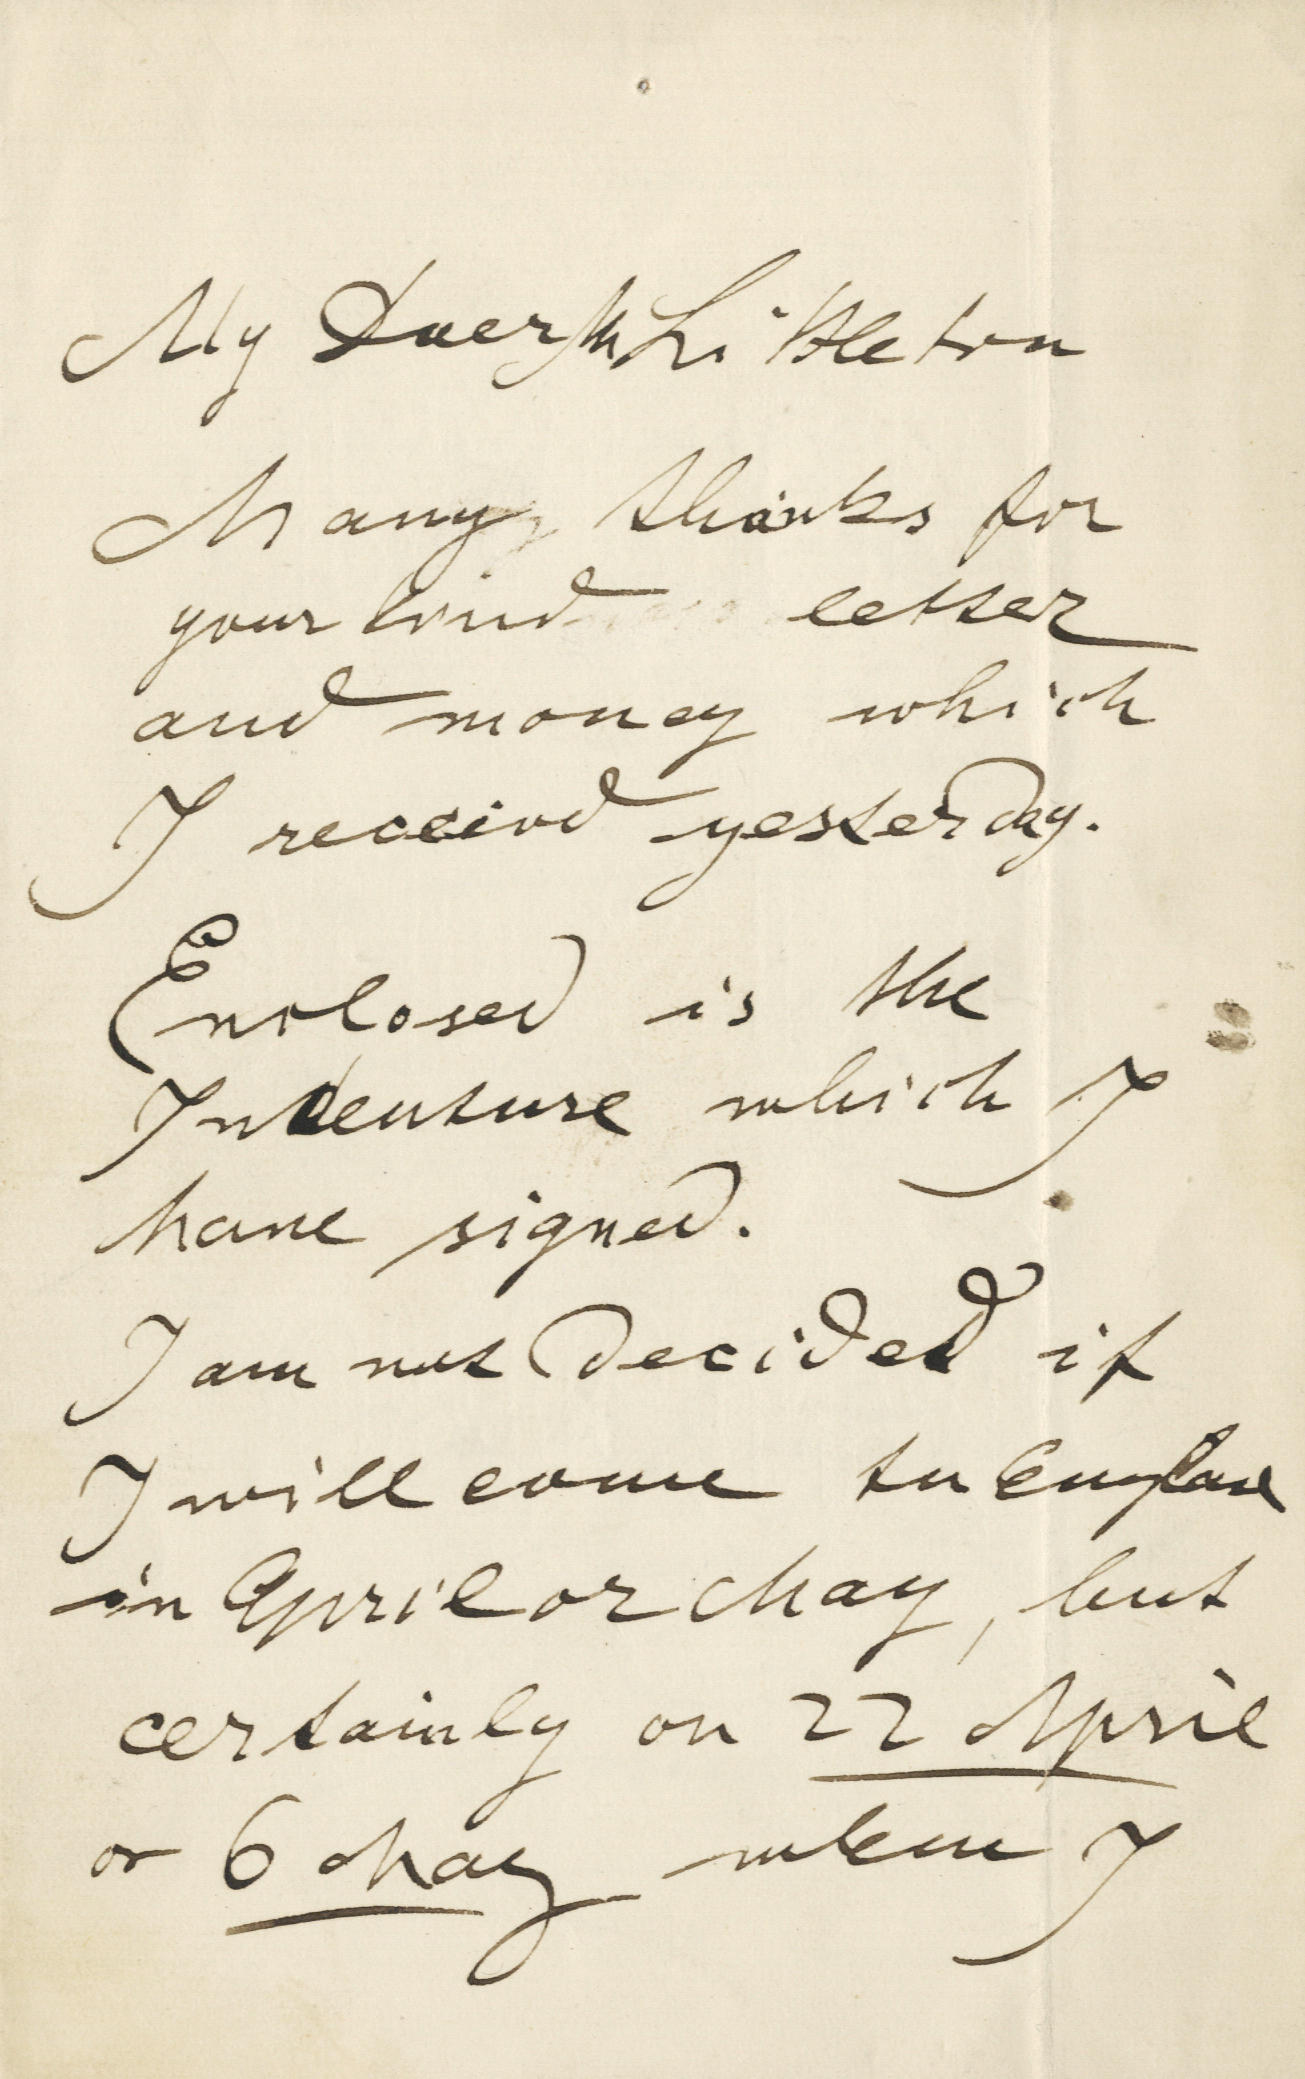 My Daer Mr Littleton
Many thanks for
your kind letter
and money which
I receivd yesterday.
Enclosed is the
Indenture which I
have signed.
I am not decided if
I will come to England
in April or May, but
certainly on 22 April
or 6 May when I